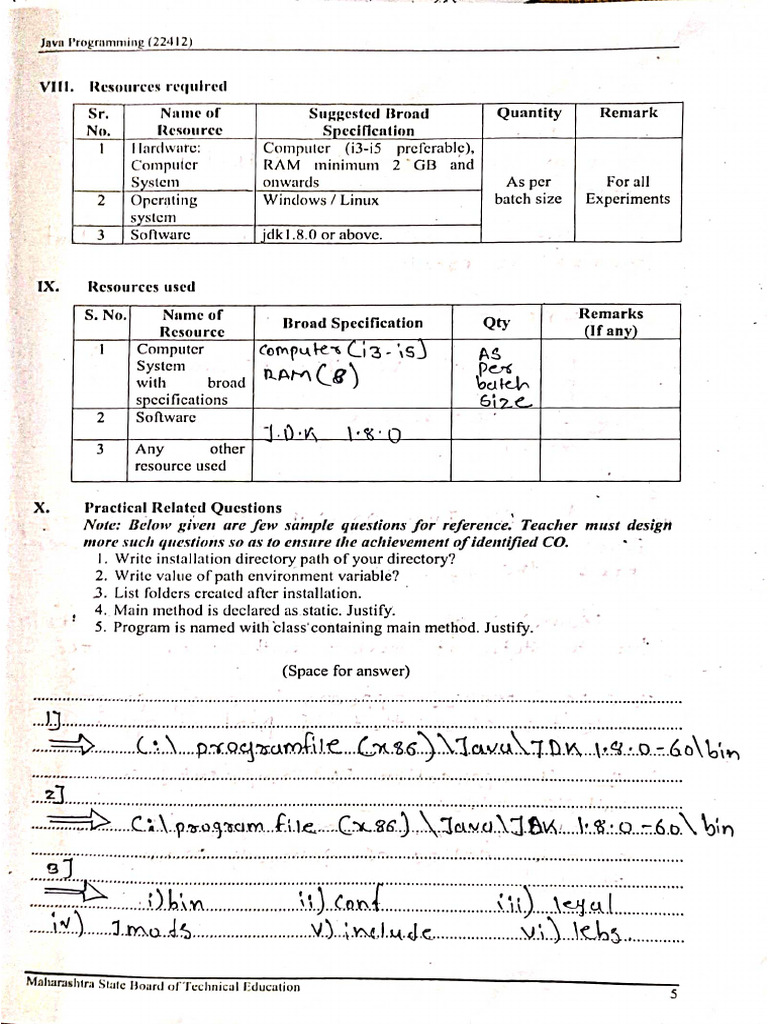 Java Programming (22412)
VIII. Resources required
Sr. No. Name of Resource Suggested Broad Specification Quantity Remark
1 Hardware: Computer System Computer (i3-i5 preferable), RAM minimum 2 GB and onwards As per batch size For all Experiments
2 Operating system Windows / Linux
3 Software jdk1.8.0 or above.
IX. Resources used
S. No. Name of Resource Broad Specification Qty Remarks (If any)
1 Computer System with broad specifications computer (i3-i5) RAM (8) AS per batch size
2 Software J.D.K 1.8.0
3 Any other resource used
X. Practical Related Questions
Note: Below given are few sample questions for reference. Teacher must design
more such questions so as to ensure the achievement of identified CO.
1. Write installation directory path of your directory?
2. Write value of path environment variable?
3. List folders created after installation.
4. Main method is declared as static. Justify.
5. Program is named with class containing main method. Justify.
(Space for answer)
1]
C:\ programfile (x86)\Java\JDK 1.8.0-60\bin
2]
C:\program file (x86) \Java\JDK 1.8.0-60\bin
3]
i) bin ii) conf iii) legal
iv) Jmods v) include vi) lebs
Maharashtra State Board of Technical Education
5